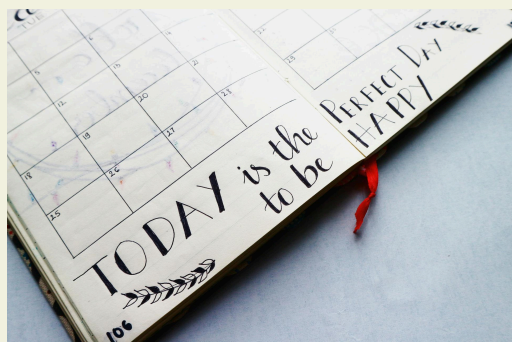 TUE
5
12
20
28
19
27
18
26
25
TODAY is the PERFECT DAY
to be HAPPY
106